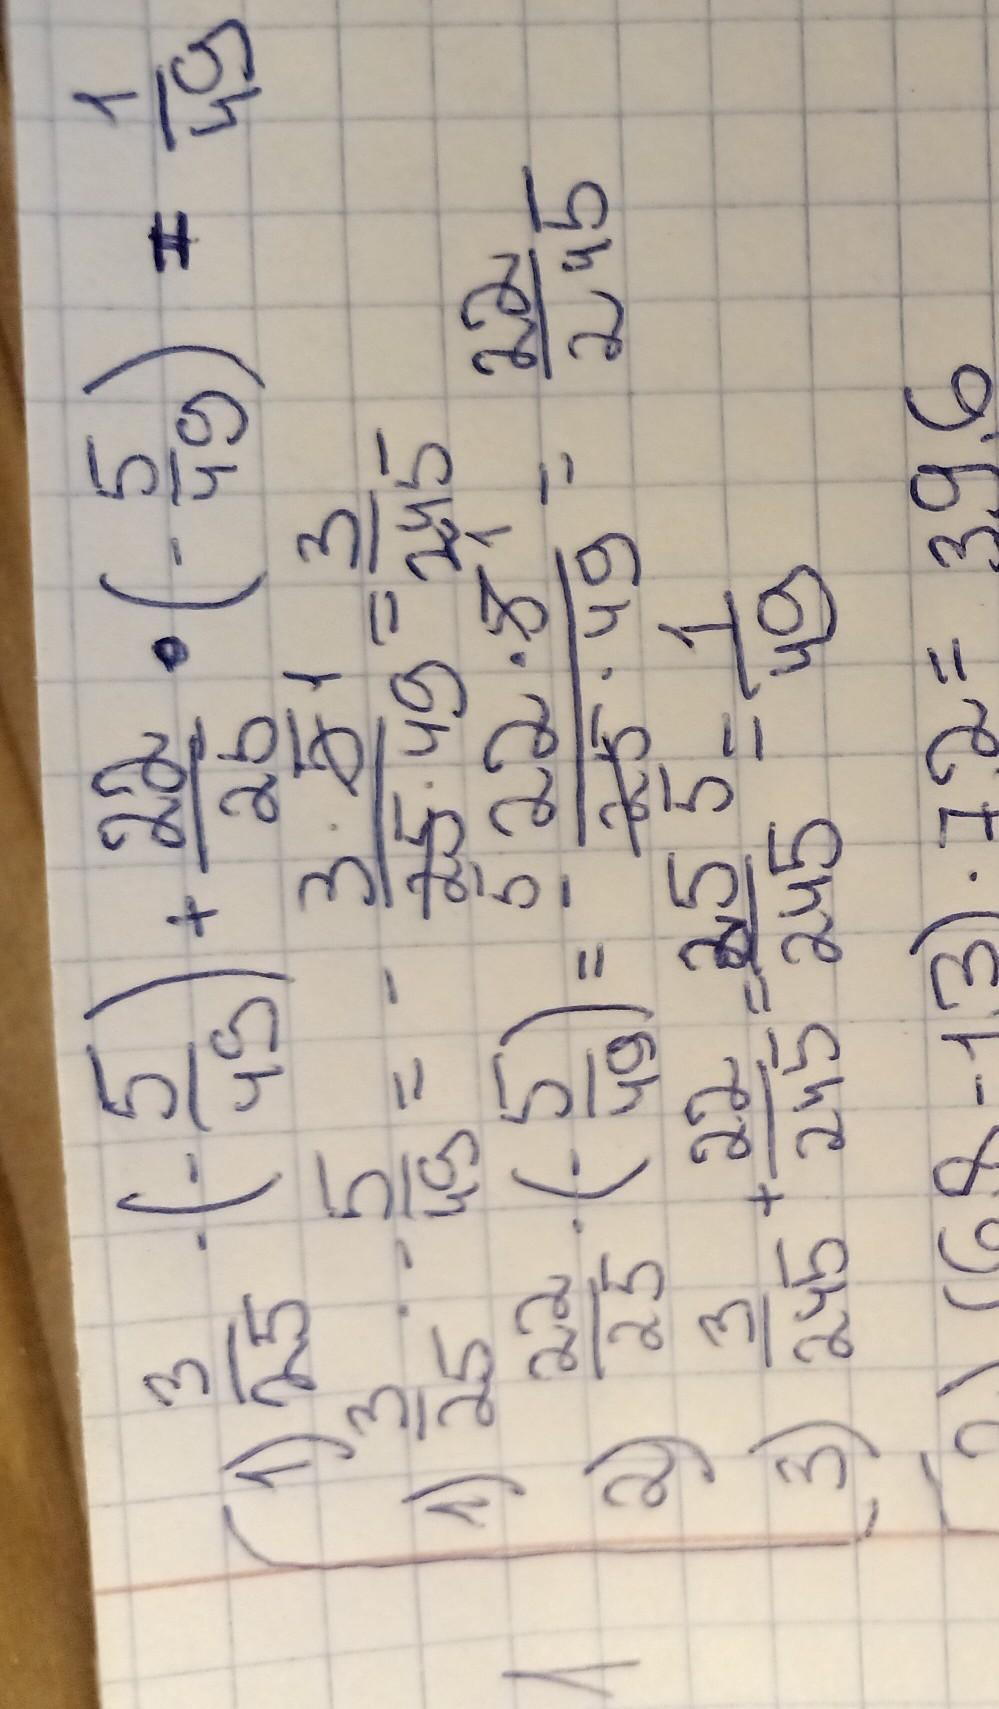 1) 3/25 · (- 5/49) + 22/25 · (- 5/49) = 1/49
1) 3/25 · - 5/49 = - 3 · 5 1/25 · 49 = 3/245
2) 22/25 · (- 5/49) = - 22 · 5 1/5 25 · 49 = 22/245
3) 3/245 + 22/245 = 25/245 5 = 1/49
2) (6,8 - 1,3) · 7,2 = 39,6
1